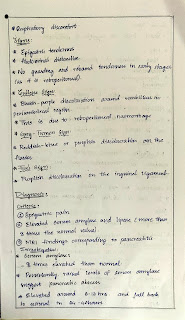 * Respiratory discomfort
Signs:
* Epigastric tenderness
* Abdominal distension
* No guarding and rebound tenderness in early stages
(as it is retroperitoneal)
* Cullen's sign
* Bluish-purple discoloration around umbilicus or
periumbilical region
* This is due to retroperitoneal haemorrhage
* Grey-Turner's sign
* Reddish-brown or purplish discoloration on the
flanks
* Fox's sign
* Purplish discoloration on the inguinal ligament
Diagnosis:
Criteria:
① Epigastric pain
② Elevated serum amylase and lipase (more than
3 times the normal value)
③ MRI findings corresponding to pancreatitis
Investigation:
* Serum amylase:
* 3 times elevated than normal
* Persistently raised levels of serum amylase
suggest pancreatic abscess
* Elevated around 6-12 hrs and fall back
to normal in